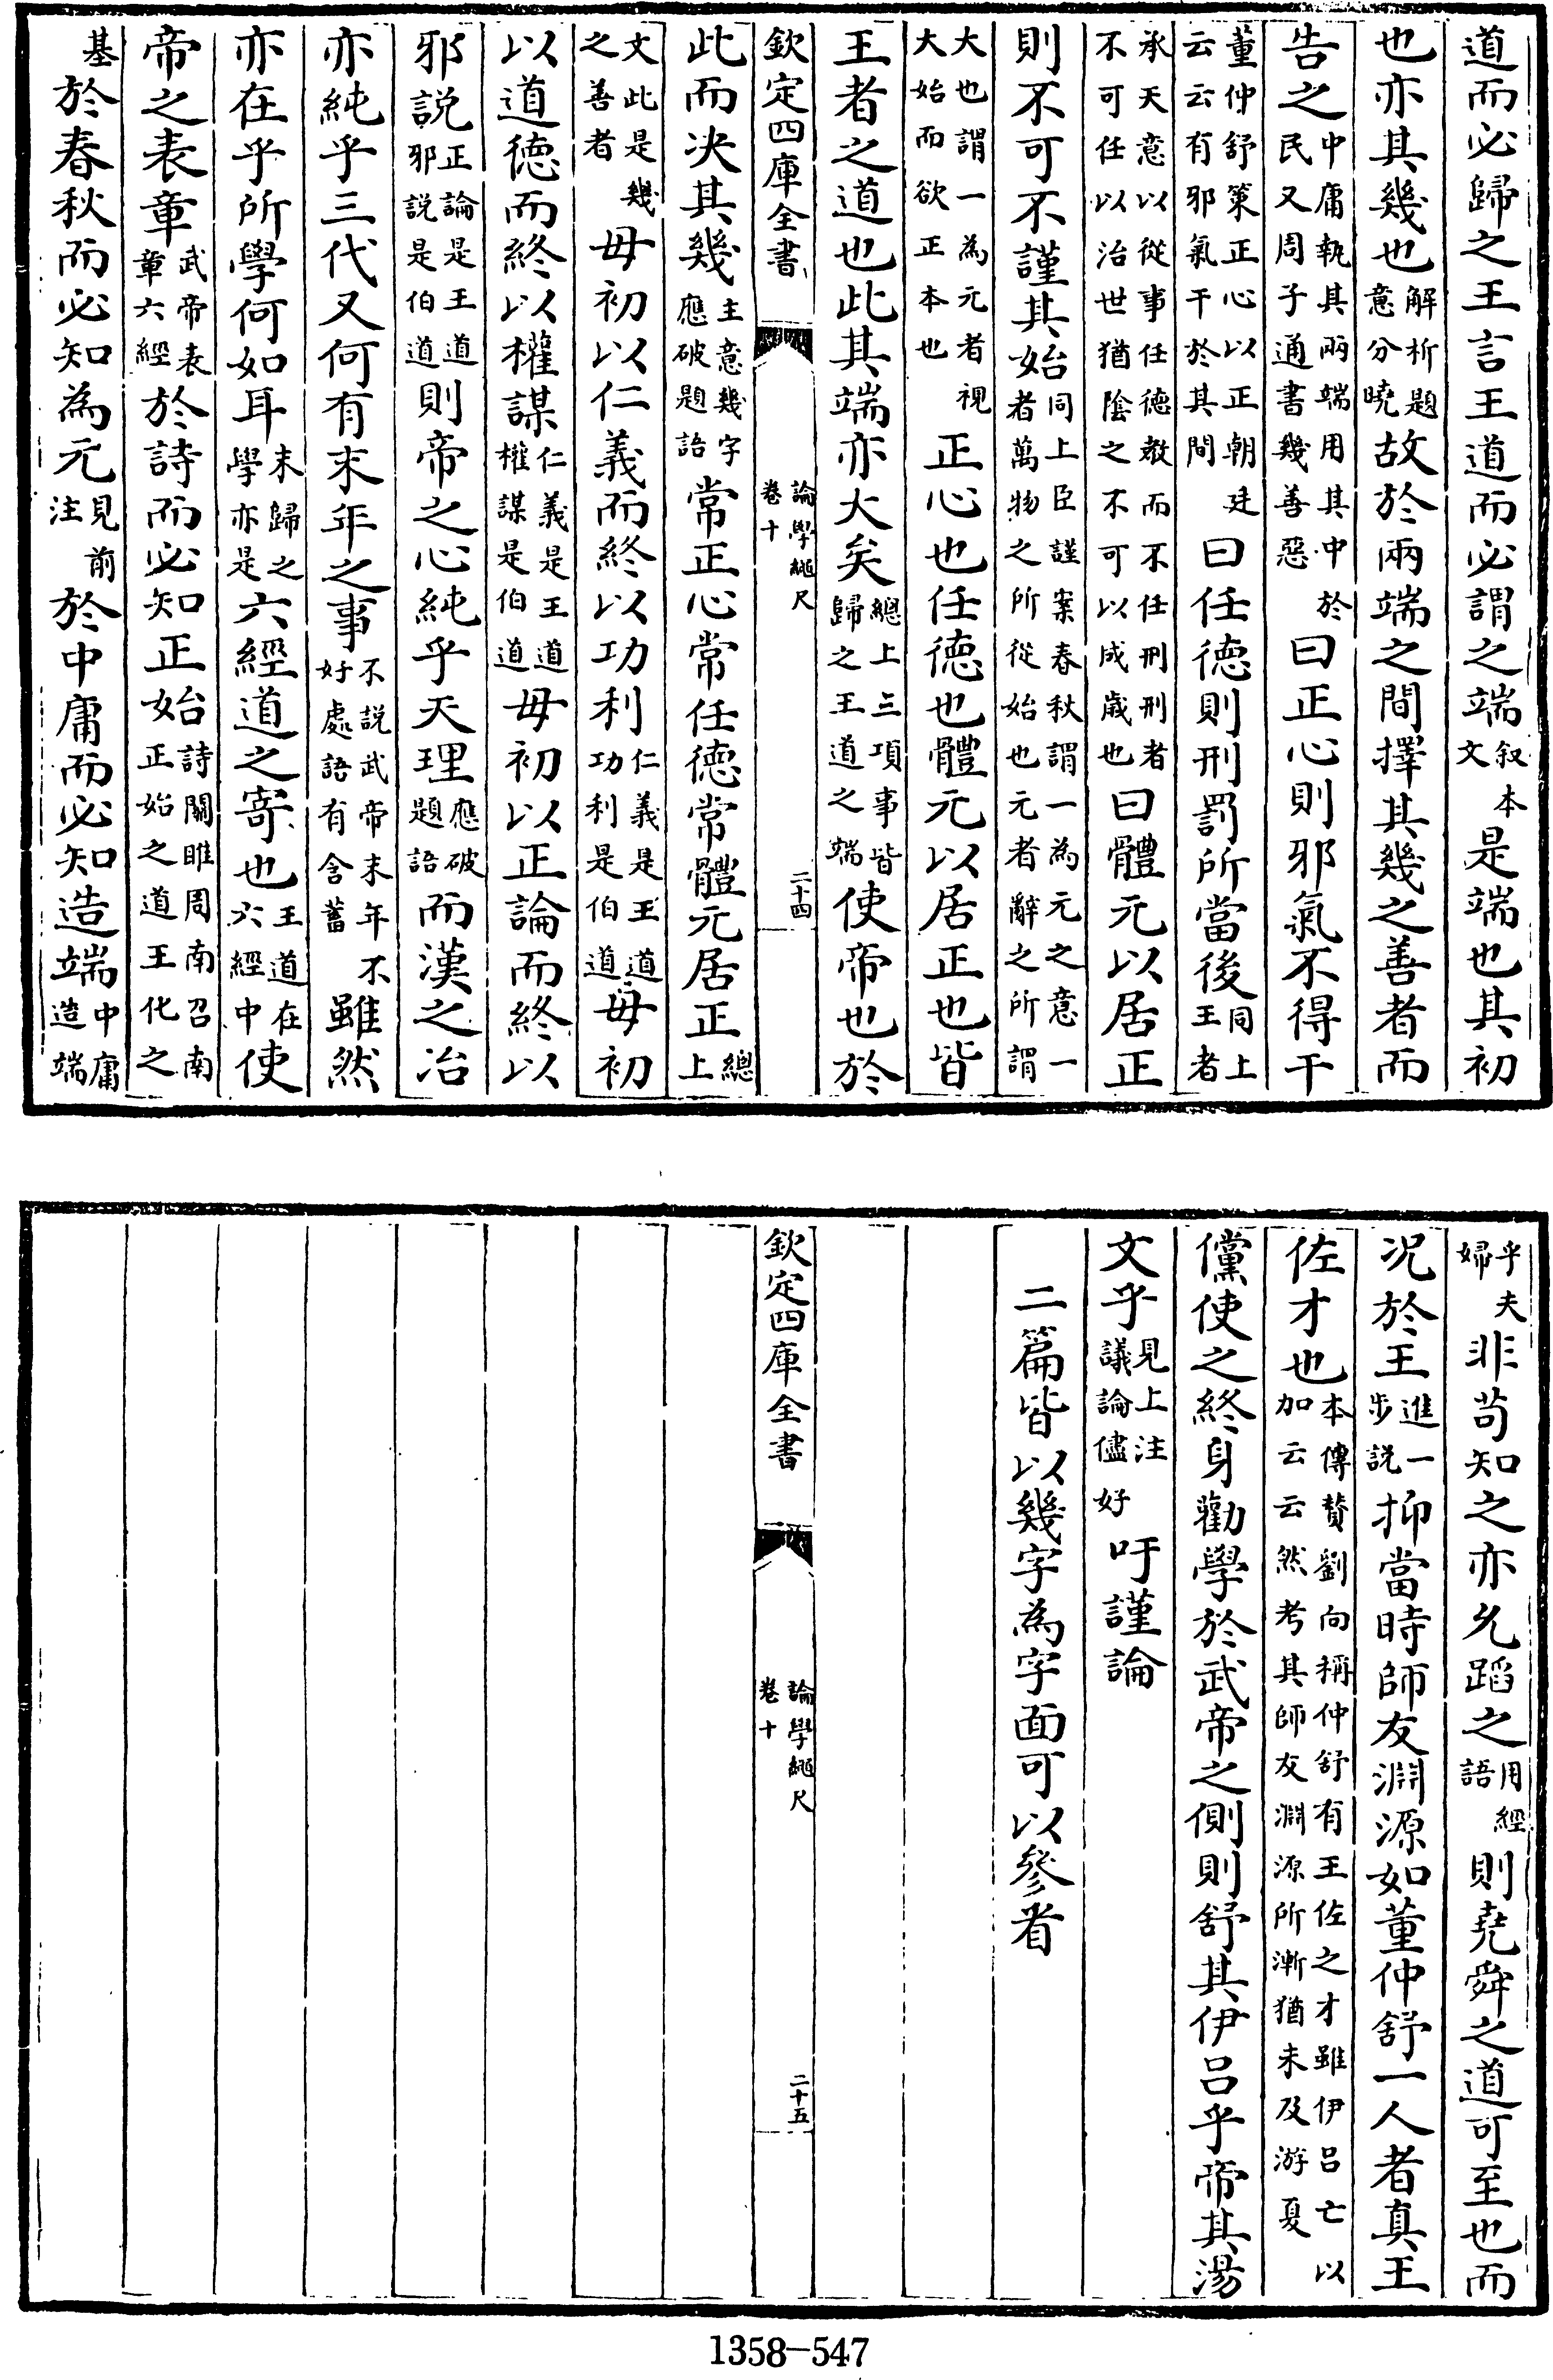 道而必歸之王言王道而必謂之端叙本文是端也其初
也亦其幾也解析題意分曉故於兩端之間擇其幾之善者而
告之中庸執其兩端用其中於民又周子通書幾善惡曰正心則邪氣不得干
董仲舒策正心以正朝廷云云有邪氣干於其間曰任德則刑罰所當後同上王者
承天意以從事任德教而不任刑刑者不可任以治世猶陰之不可以成歲也曰體元以居正
則不可不謹其始同上臣謹案春秋謂一為元之意一者萬物之所從始也元者辭之所謂
大也謂一為元者視大始而欲正本也正心也任德也體元以居正也皆
王者之道也此其端亦大矣總上三項事皆歸之王道之端使帝也於
欽定四庫全書
論學繩尺
卷十
二十四
此而决其幾主意幾字應破題語常正心常任德常體元居正總上
文此是幾之善者毋初以仁義而終以功利仁義是王道功利是伯道毋初
以道德而終以權謀仁義是王道權謀是伯道毋初以正論而終以
邪説正論是王道邪説是伯道則帝之心純乎天理應破題語而漢之治
亦純乎三代又何有末年之事不説武帝末年不好處語有含蓄雖然
亦在乎所學何如耳末歸之學亦是六經道之寄也王道在六經中使
帝之表章武帝表章六經於詩而必知正始詩關睢周南召南正始之道王化之
基於春秋而必知為元見前注於中庸而必知造端中庸造端
乎夫婦非苟知之亦允蹈之用經語則堯舜之道可至也而
况於王進一步説抑當時師友淵源如董仲舒一人者真王
佐才也本傳賛劉向稱仲舒有王佐之才雖伊吕亡以加云云然考其師友淵源所漸猶未及游夏
儻使之終身勸學於武帝之側則舒其伊吕乎帝其湯
文乎見上注議論儘好吁謹論
二篇皆以幾字為字面可以參看
欽定四庫全書
論學繩尺
卷十
二十五
1358-547